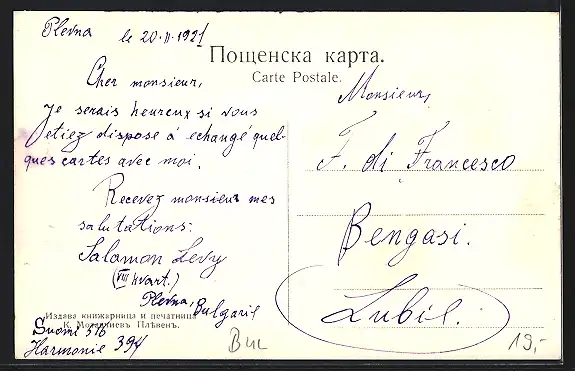 Plevna le 20·II·1921
Пощенска карта.
Carte Postale.
Cher monsieur,
Je serais heureux si vous
etiez disposé à echangé quel-
ques cartes avec moi.
Recevez monsieur mes
salutations:
Salamon Levy
(VIII kvart.)
Plevna, Bulgarie
Издава книжарница и печатница
К. Плѣвенъ.
Suomi 316
Harmonie 394
Monsieur,
F. di Francesco
Bengasi.
Lubil.
Вис
19,-